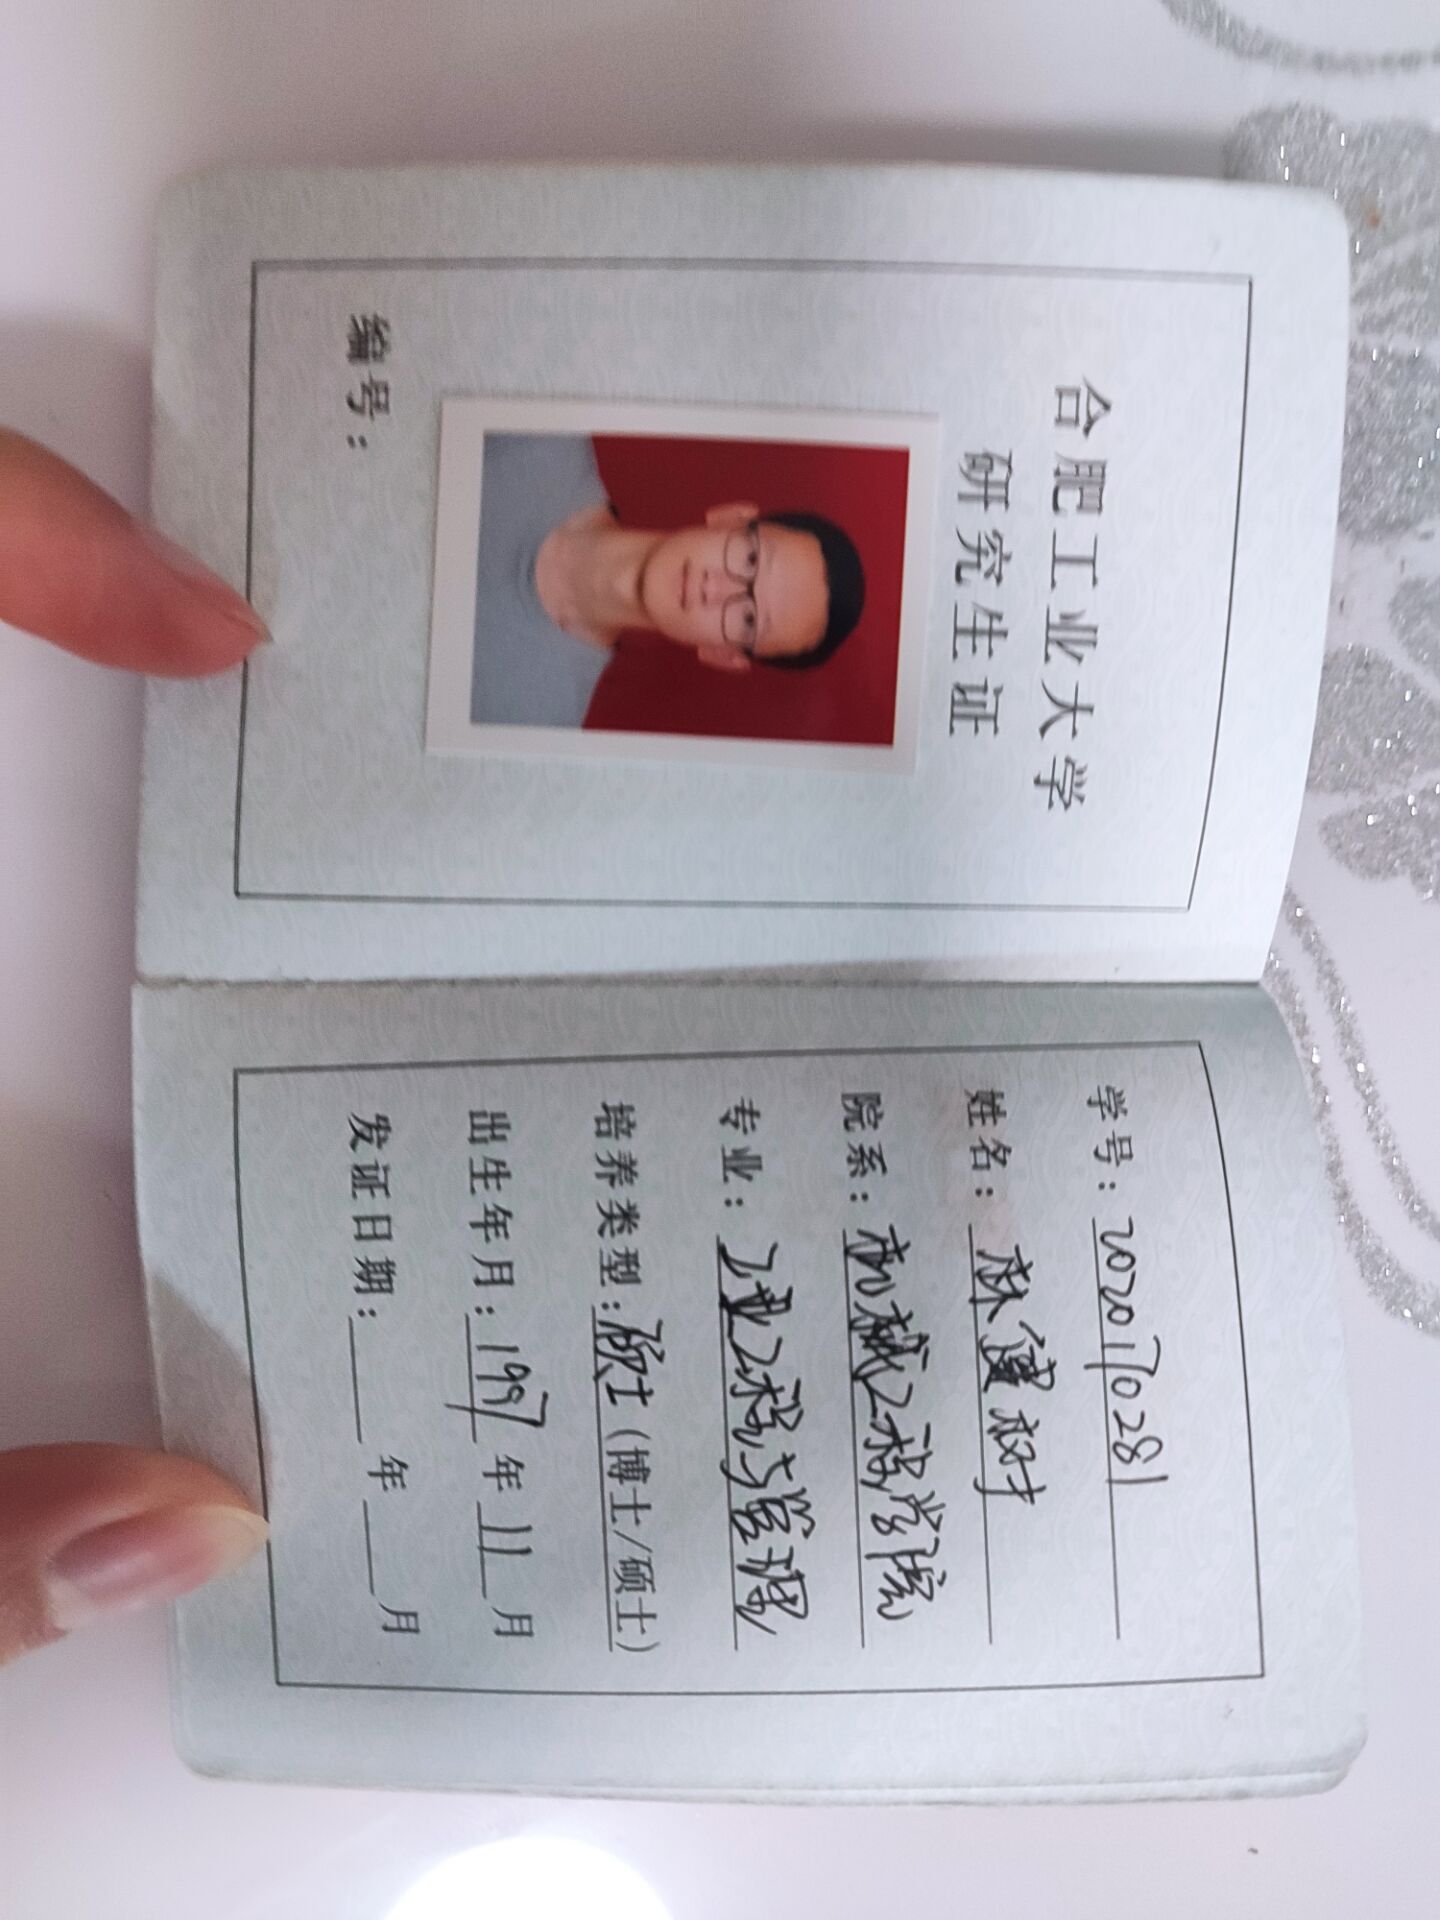 合肥工业大学
研究生证
编号：
学号：2020170281
姓名：麻健树
院系：机械工程学院
专业：工业工程与管理
培养类型：硕士（博士/硕士）
出生年月：1997年11月
发证日期：年月